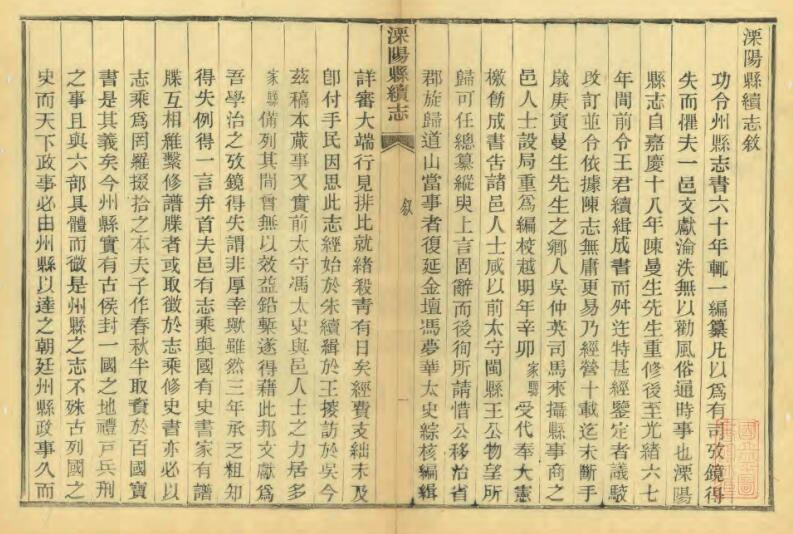 溧陽縣續志敘
功令州縣志書六十年輒一編纂凡以爲有司攷鏡得
失而懼夫一邑文獻淪泆無以勸風俗通時事也溧陽
縣志自嘉慶十八年陳曼生先生重修後至光緒六七
年間前令王君續緝成書而舛迕特甚經鑒定者議駮
改訂並令依據陳志無庸更易乃經營十載迄未斷手
歲庚寅曼生先生之鄉人吳仲英司馬來攝縣事商之
邑人士設局重爲編校越明年辛卯家驤受代奉大憲
檄創成書告諸邑人士咸以前太守閩縣王公物望所
歸可任總纂縱臾上言固辭而後徇所請惜公移治省
郡旋歸道山當事者復延金壇馮夢華太史綜核編緝
溧陽縣續志
敘
一
詳審大端行見排比就緒殺青有日矣經費支絀未及
卽付手民因思此志經始於朱續緝於王搜訪於吳今
茲稿本蕆事又實前太守馮太史與邑人士之力居多
家驤備列其間曾無以效益鉛槧遂得藉此邦文獻爲
吾學治之攷鏡得失謂非厚幸歟雖然三年承乏粗知
得失例得一言弁首夫邑有志乘與國有史書家有譜
牒互相維繫修譜牒者或取徵於志乘修史書亦必以
志乘爲罔羅掇拾之本夫子作春秋半取資於百國寶
書是其義矣今州縣實有古侯封一國之地禮戸兵刑
之事且與六部具體而微是州縣之志不殊古列國之
史而天下政事必由州縣以達之朝廷州縣政事久而